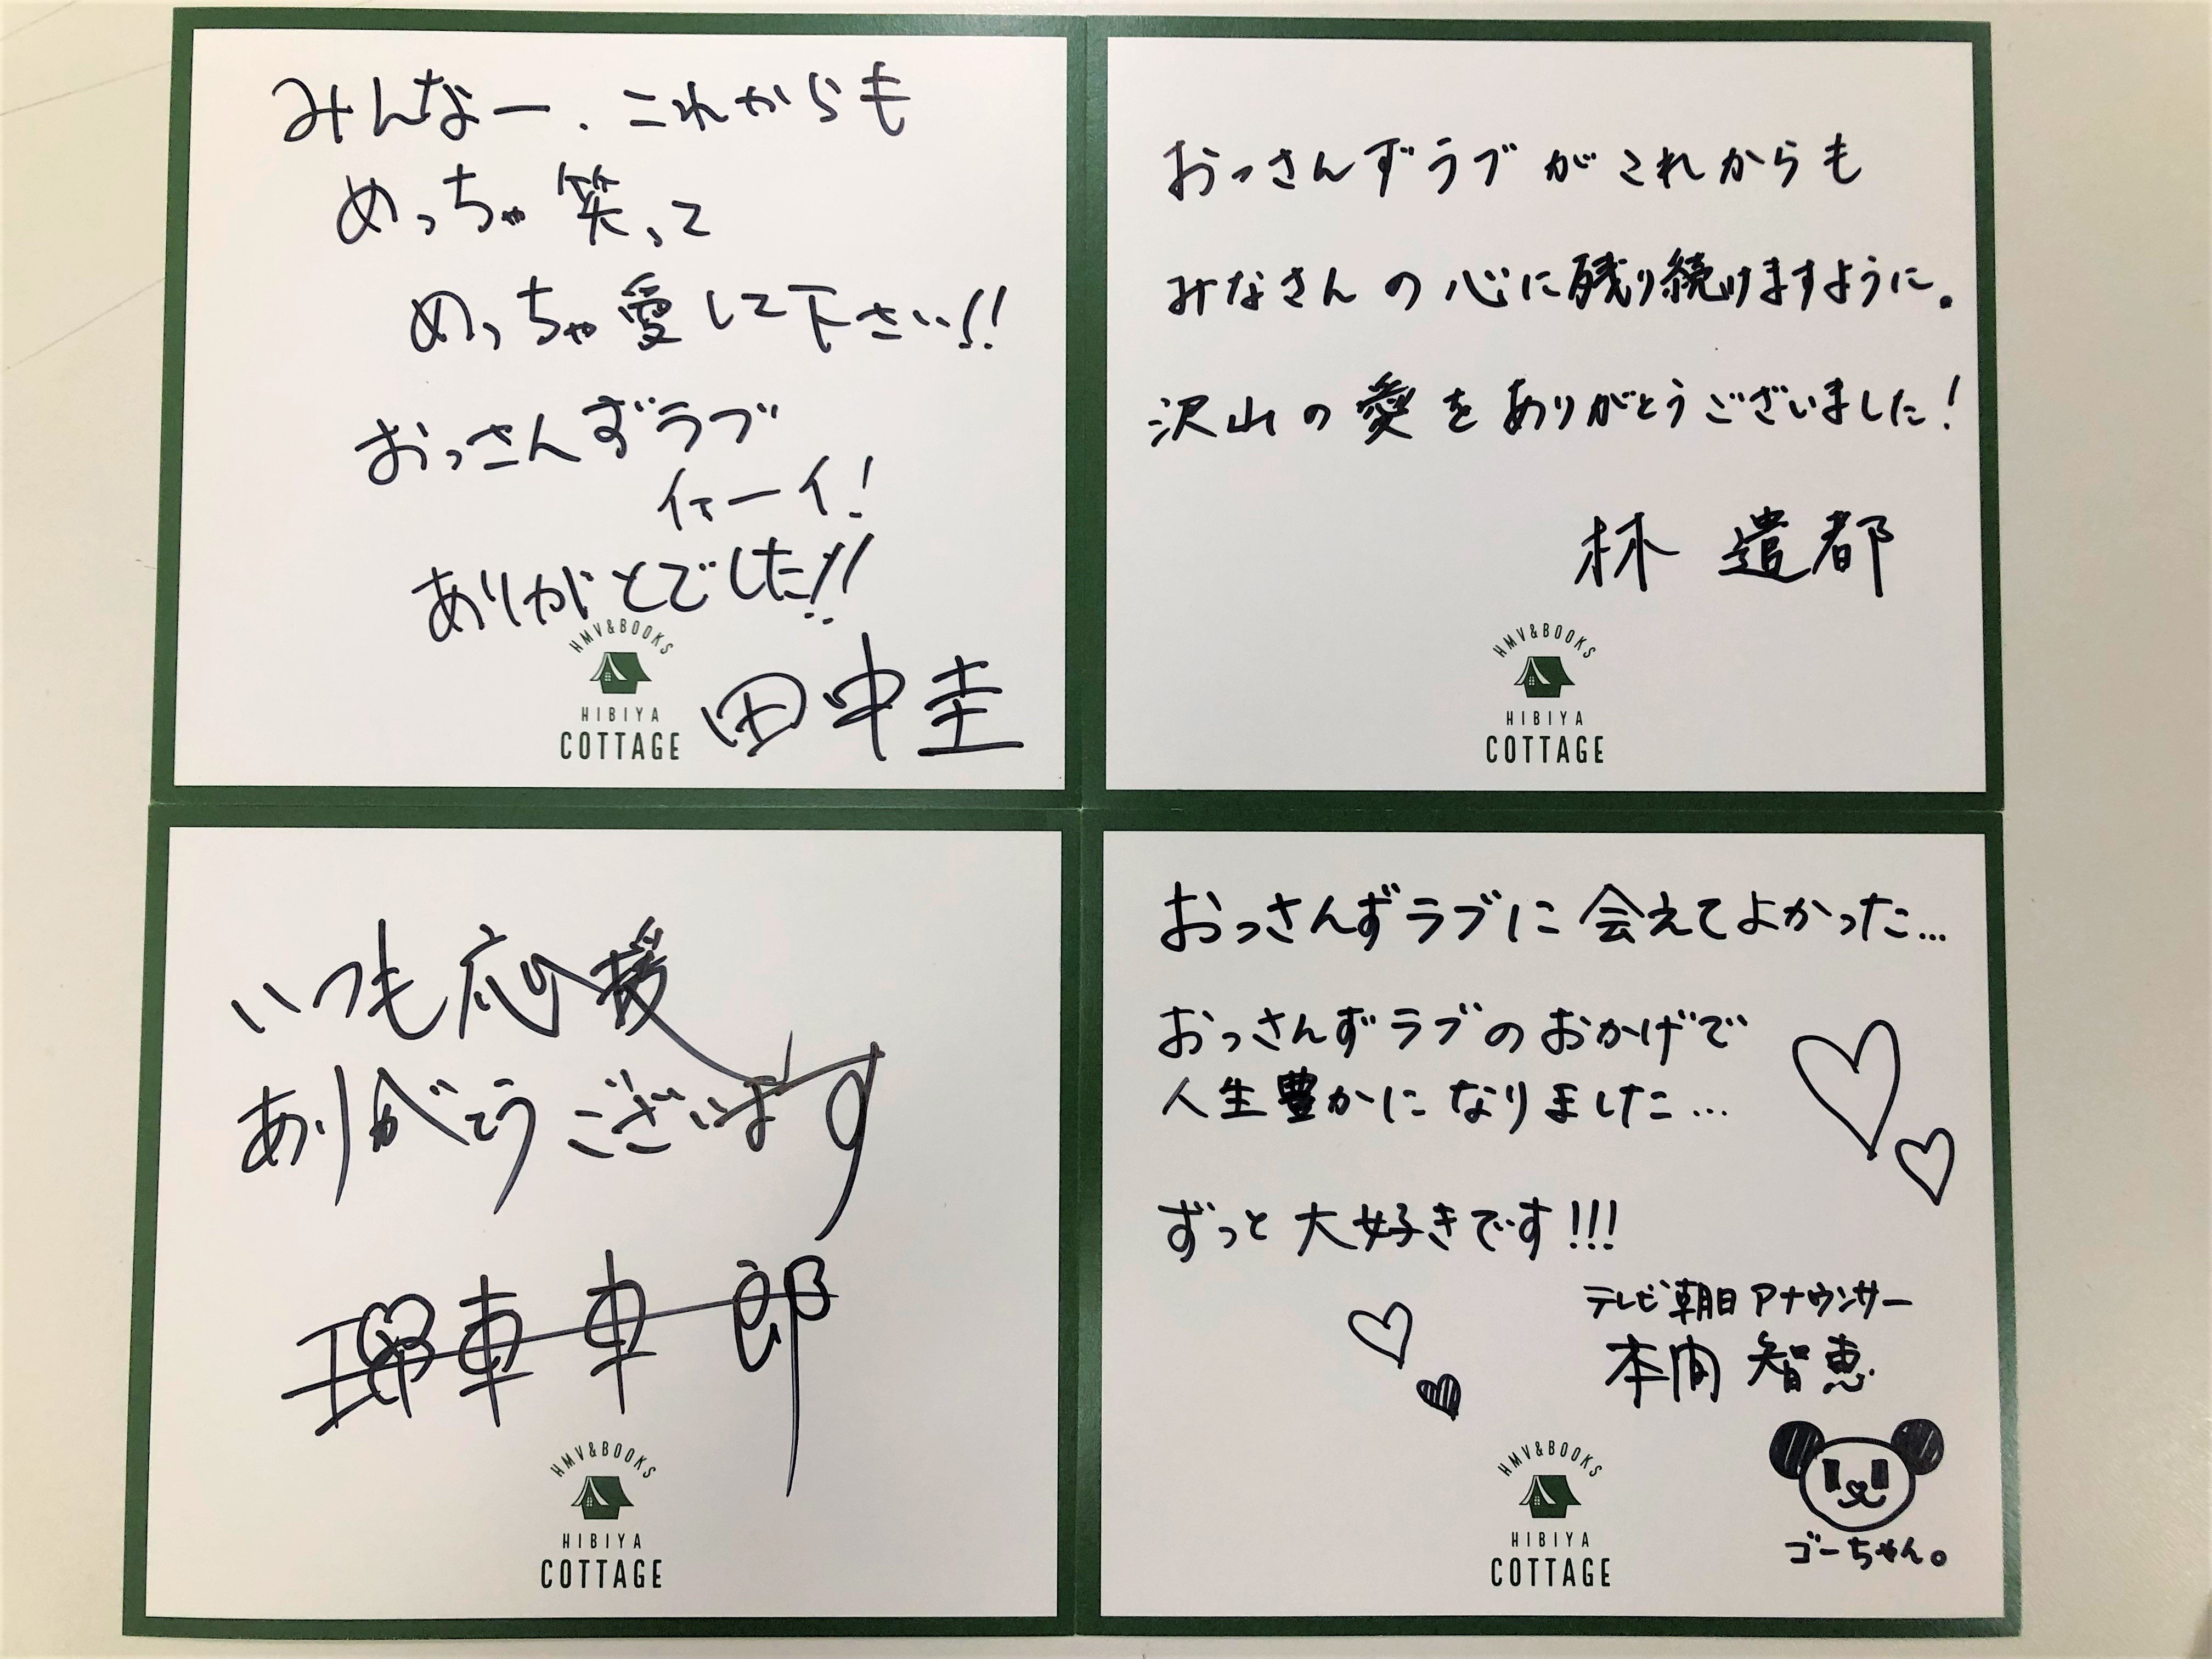 みんなー、これからも
めっちゃ笑って
めっちゃ愛して下さい!!
おっさんずラブ
イェーイ!
ありがとでした!!
田中圭
HMV&BOOKS
HIBIYA
COTTAGE
おっさんずラブがこれからも
みなさんの心に残り続けますように。
沢山の愛をありがとうございました!
林 遣都
HMV&BOOKS
HIBIYA
COTTAGE
いつも応援
ありがとうございます
HMV&BOOKS
HIBIYA
COTTAGE
おっさんずラブに会えてよかった…
おっさんずラブのおかげで
人生豊かになりました…
ずっと大好きです!!!
テレビ朝日アナウンサー
本間 智恵
ゴーちゃん。
HMV&BOOKS
HIBIYA
COTTAGE